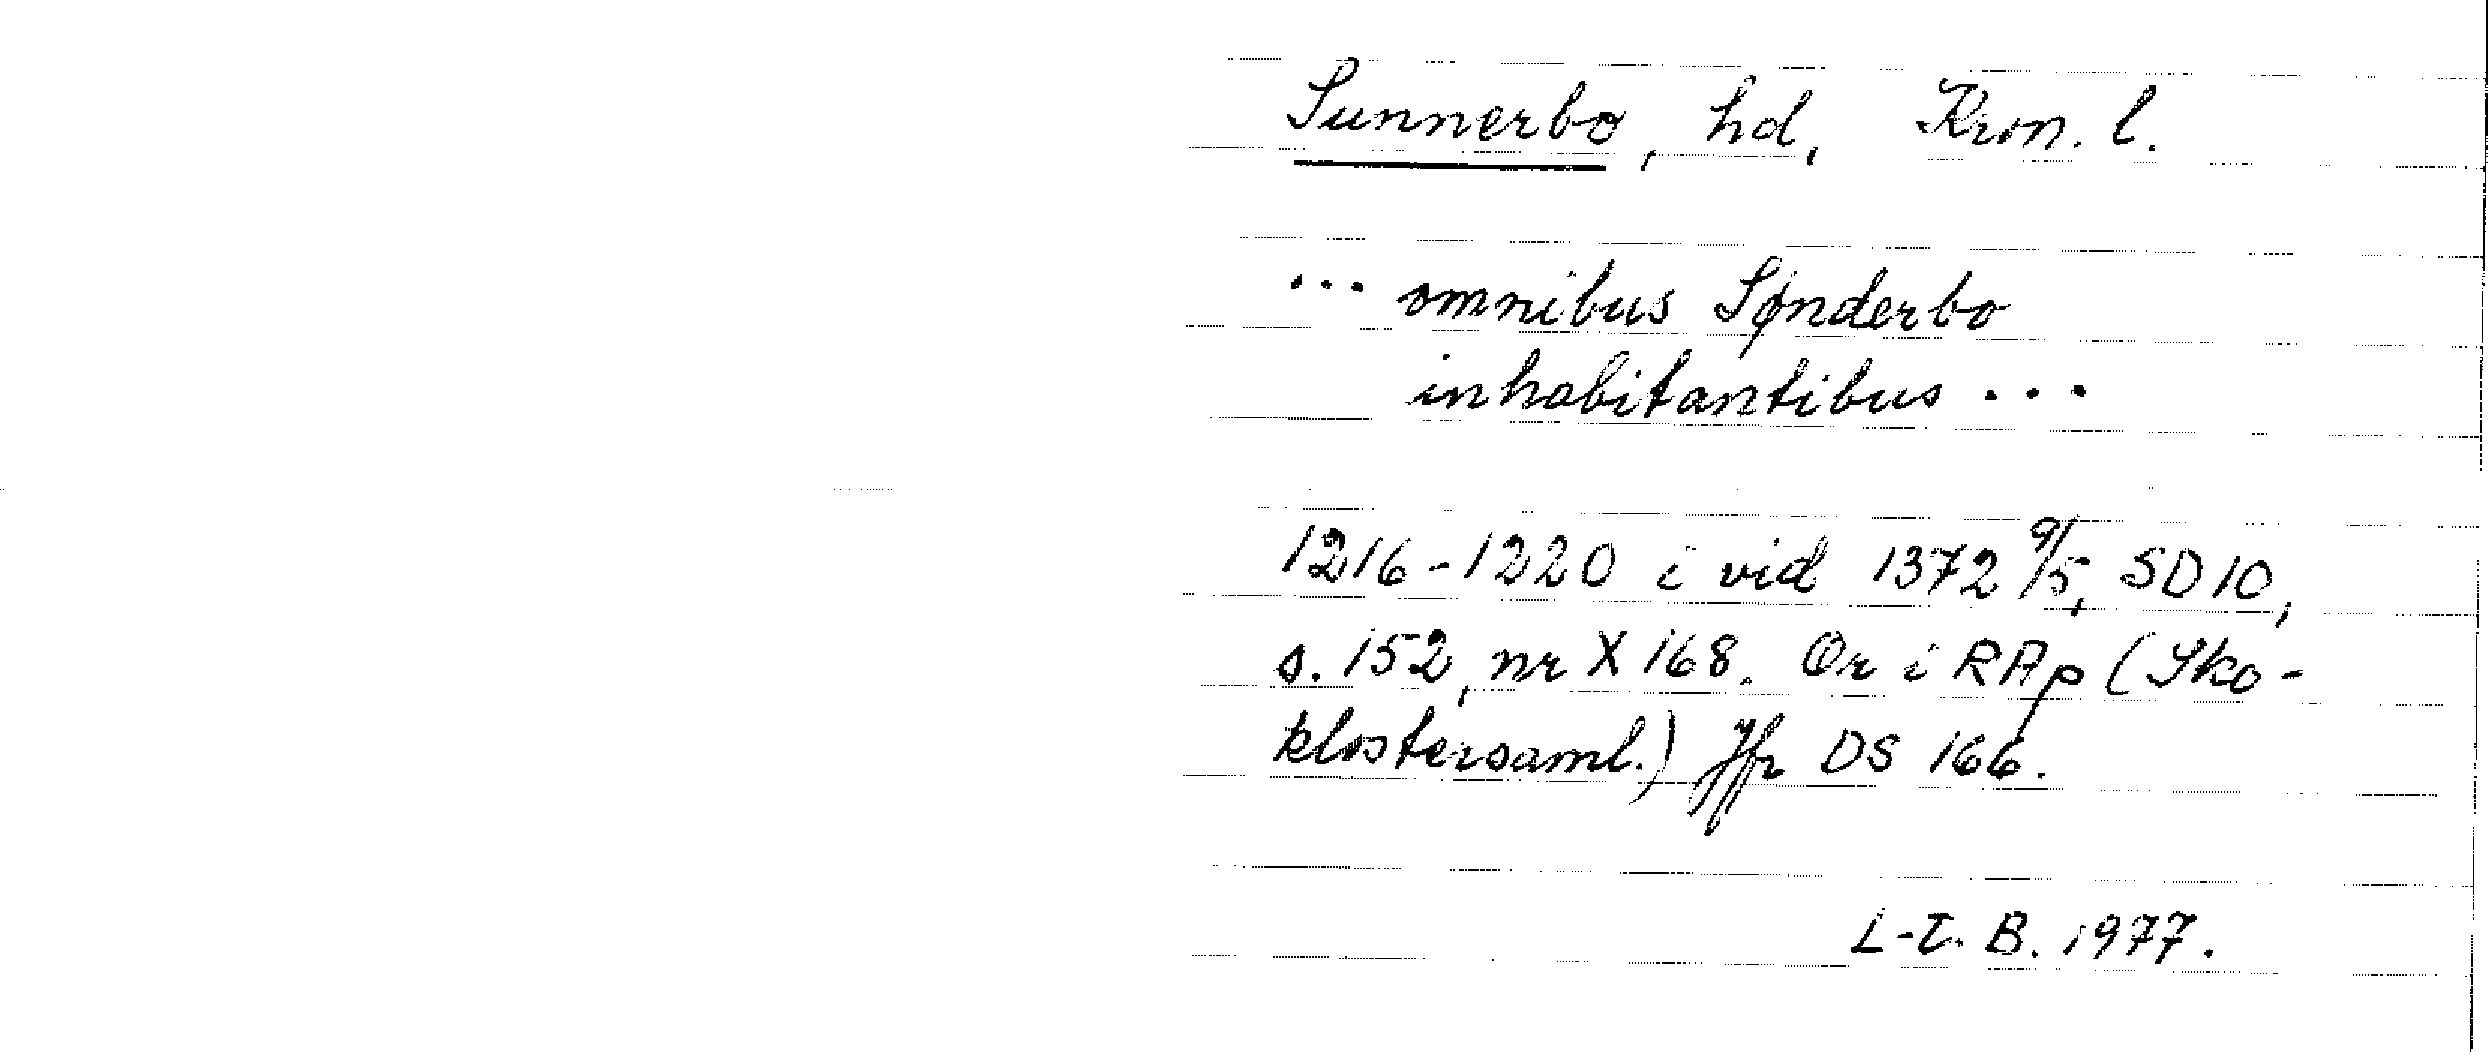 Sunnerbo, hd, Kron. l.
... omnibus Sønderbo
inhabitantibus ...
1216-1220 i vid 1372 9/5, SD 10,
s. 152, nr X 168. Or i RAp (Sko-
klostersaml.) Jfr DS 166.
L-E. B. 1977.